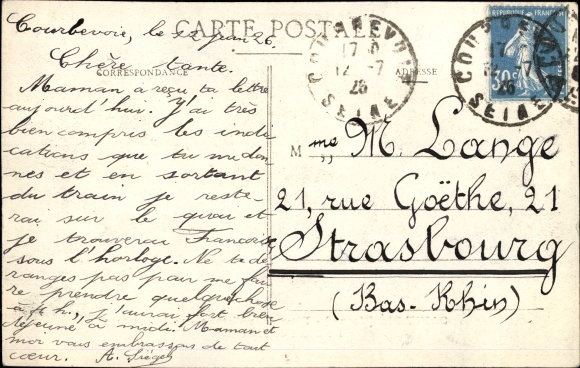 CARTE POSTALE
CORRESPONDANCE
ADRESSE
Courbevoie, le 12 juin 26.
Chère tante.
Maman a reçu ta lettre
aujourd'hui. J'ai très
bien compris les indi
cations que tu me don
nes et en sortant
du train je reste-
rai sur le quai et
je trouverai Françoise
sous l'horloge. Ne te dé
ranges pas pour me fai
re prendre quelque chose
à 4 h., j'aurai fort bien
déjeuné à midi. Maman et
moi vous embrassons de tout
cœur. A. Liégey
COURBEVOIE
17 0
12 -7
26
SEINE
COURBEVOIE
17
12 -7
26
SEINE
REPUBLIQUE FRANÇAISE
30c
M me M. Lange
21, rue Goëthe, 21
Strasbourg
(Bas-Rhin)